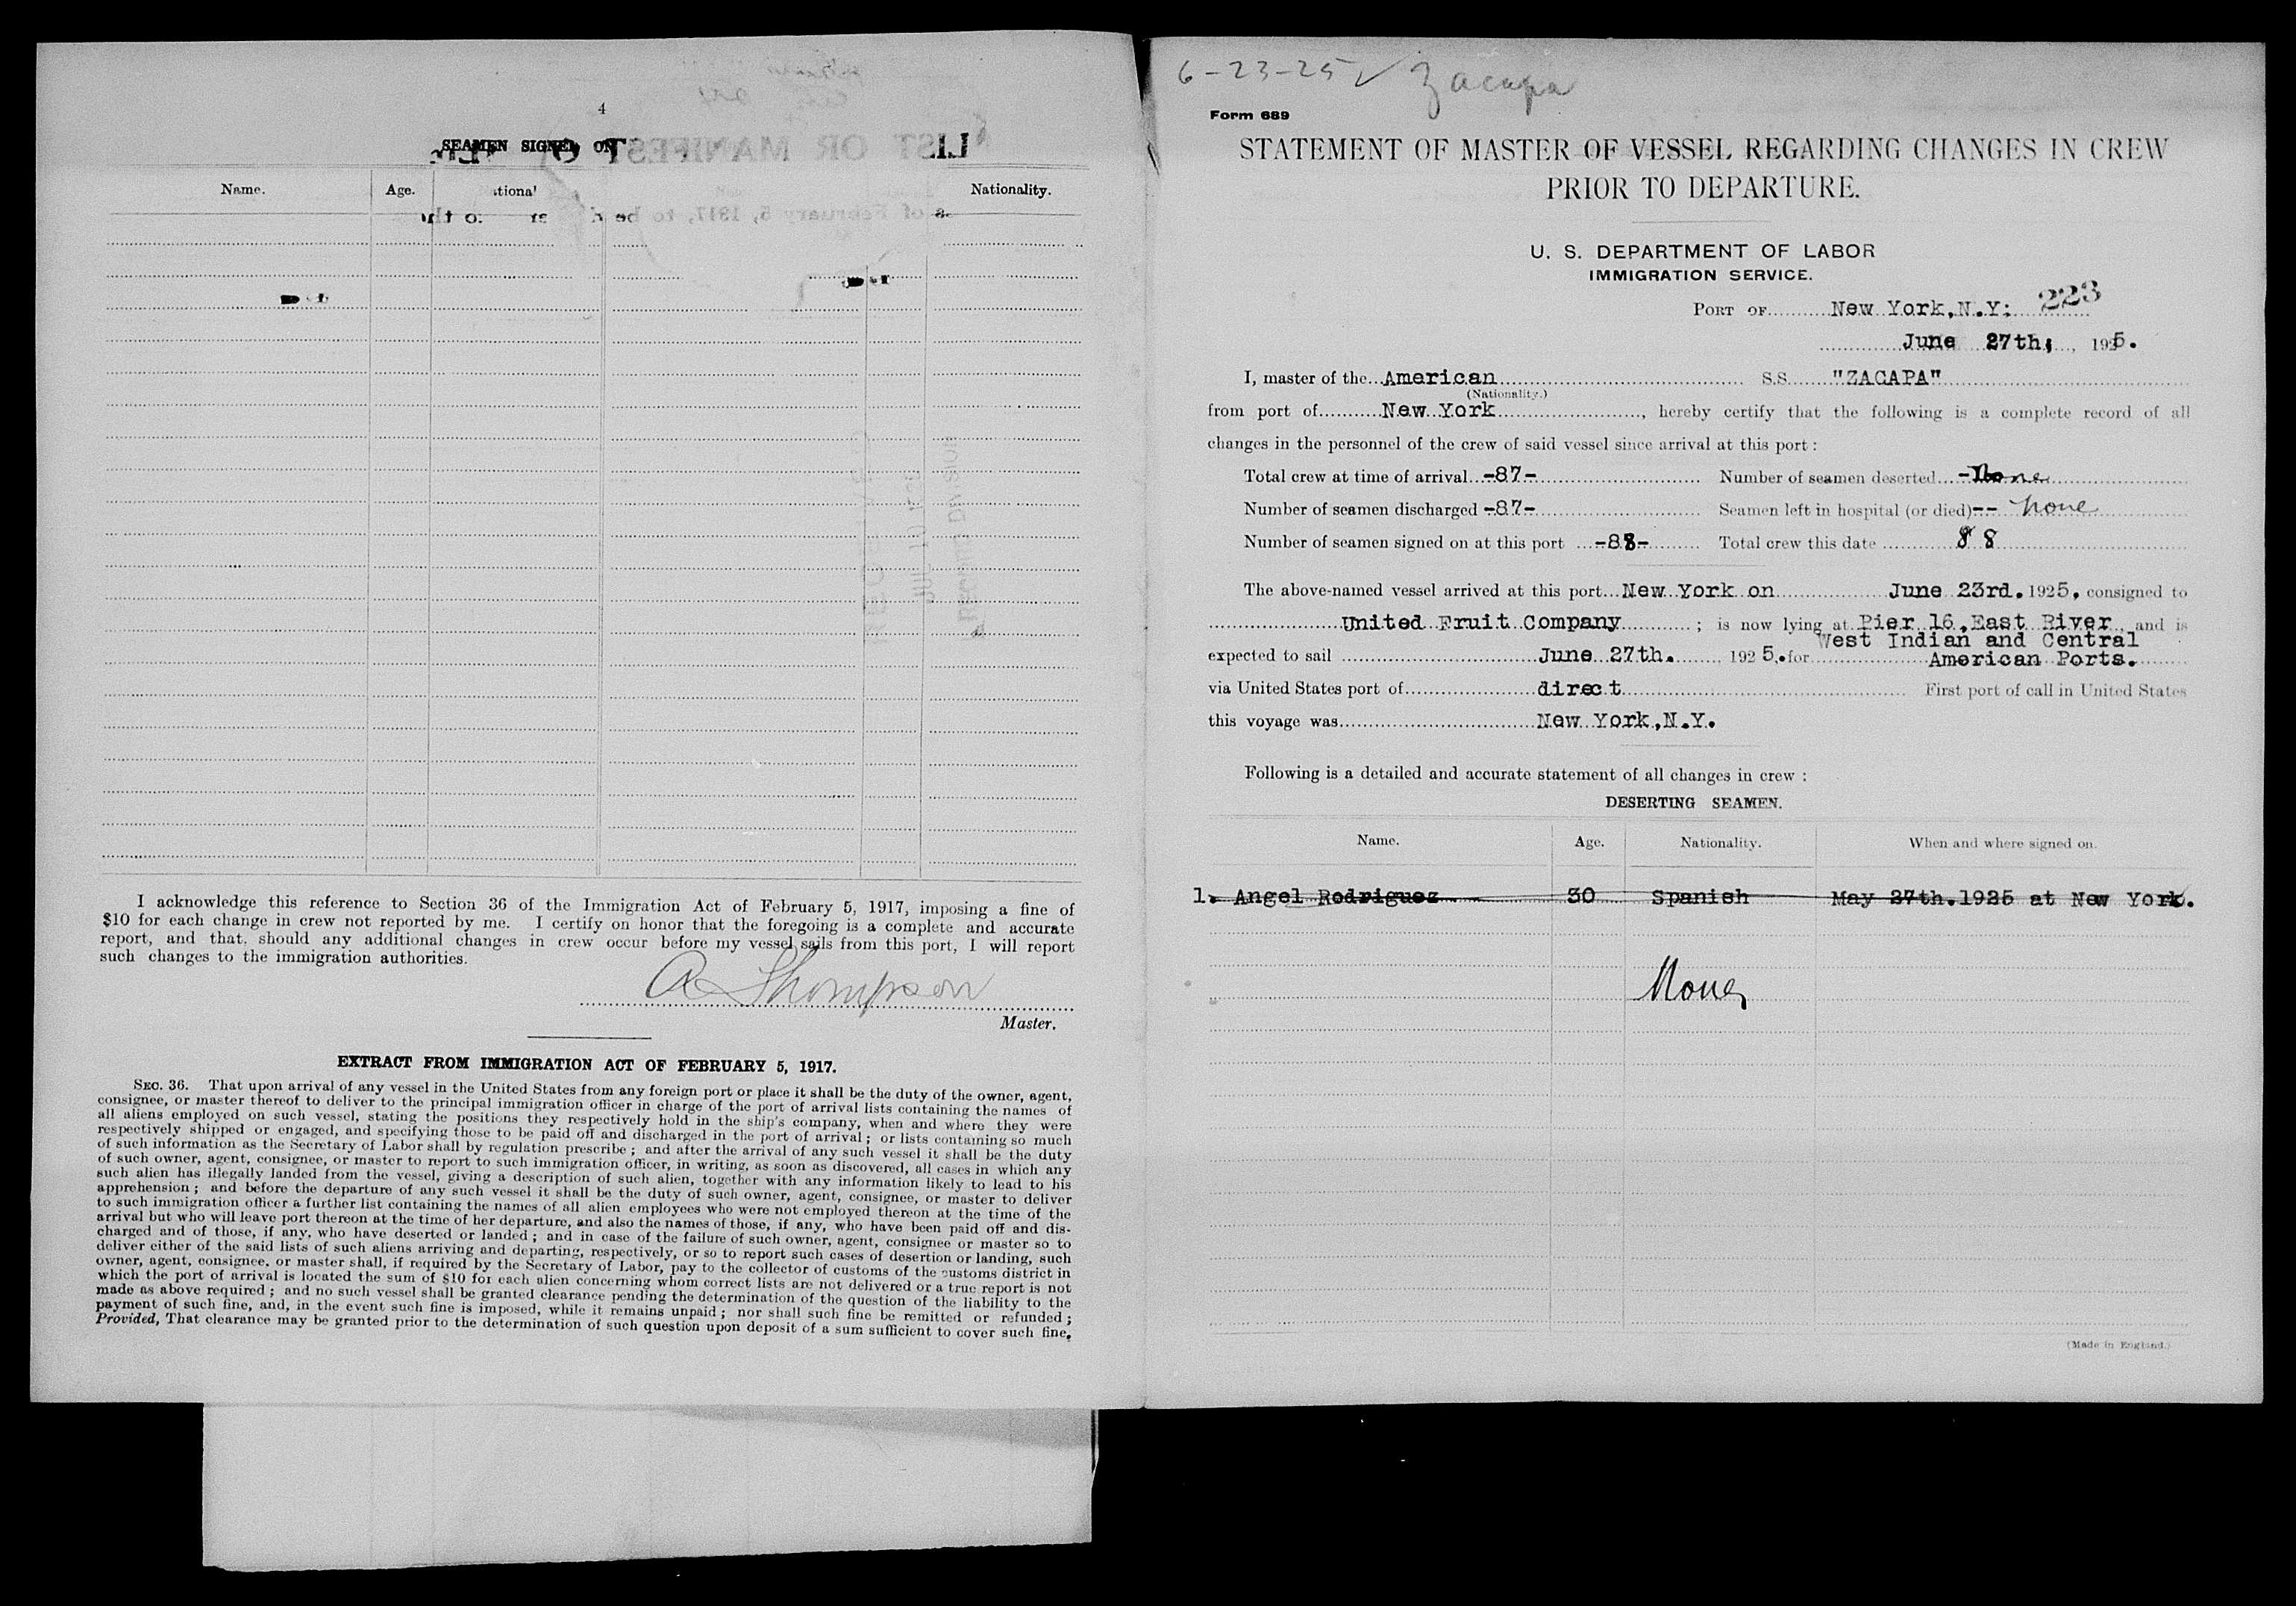 4
SEAMEN SIGNED ON
Name. Age. Nationality.
I acknowledge this reference to Section 36 of the Immigration Act of February 5, 1917, imposing a fine of
$10 for each change in crew not reported by me. I certify on honor that the foregoing is a complete and accurate
report, and that, should any additional changes in crew occur before my vessel sails from this port, I will report
such changes to the immigration authorities.
A Thompson
Master.
EXTRACT FROM IMMIGRATION ACT OF FEBRUARY 5, 1917.
SEC. 36. That upon arrival of any vessel in the United States from any foreign port or place it shall be the duty of the owner, agent,
consignee, or master thereof to deliver to the principal immigration officer in charge of the port of arrival lists containing the names of
all aliens employed on such vessel, stating the positions they respectively hold in the ship's company, when and where they were
respectively shipped or engaged, and specifying those to be paid off and discharged in the port of arrival; or lists containing so much
of such information as the Secretary of Labor shall by regulation prescribe; and after the arrival of any such vessel it shall be the duty
of such owner, agent, consignee, or master to report to such immigration officer, in writing, as soon as discovered, all cases in which any
such alien has illegally landed from the vessel, giving a description of such alien, together with any information likely to lead to his
apprehension; and before the departure of any such vessel it shall be the duty of such owner, agent, consignee, or master to deliver
to such immigration officer a further list containing the names of all alien employees who were not employed thereon at the time of the
arrival but who will leave port thereon at the time of her departure, and also the names of those, if any, who have been paid off and dis-
charged and of those, if any, who have deserted or landed; and in case of the failure of such owner, agent, consignee or master so to
deliver either of the said lists of such aliens arriving and departing, respectively, or so to report such cases of desertion or landing, such
owner, agent, consignee, or master shall, if required by the Secretary of Labor, pay to the collector of customs of the customs district in
which the port of arrival is located the sum of $10 for each alien concerning whom correct lists are not delivered or a true report is not
made as above required; and no such vessel shall be granted clearance pending the determination of the question of the liability to the
payment of such fine, and, in the event such fine is imposed, while it remains unpaid; nor shall such fine be remitted or refunded;
Provided, That clearance may be granted prior to the determination of such question upon deposit of a sum sufficient to cover such fine.
6-23-25 ✓ Zacapa
Form 689
STATEMENT OF MASTER OF VESSEL REGARDING CHANGES IN CREW
PRIOR TO DEPARTURE.
U. S. DEPARTMENT OF LABOR
IMMIGRATION SERVICE.
PORT OF New York, N.Y: 223
June 27th; , 1925.
I, master of the American S.S. "ZACAPA"
(Nationality.)
from port of New York, hereby certify that the following is a complete record of all
changes in the personnel of the crew of said vessel since arrival at this port:
Total crew at time of arrival -87- Number of seamen deserted - None
Number of seamen discharged -87- Seamen left in hospital (or died) -- none
Number of seamen signed on at this port -88- Total crew this date 88
The above-named vessel arrived at this port New York on June 23rd. 1925, consigned to
United Fruit Company ; is now lying at Pier 16, East River, and is
expected to sail June 27th. , 1925, for West Indian and Central
American Ports.
via United States port of direct First port of call in United States
this voyage was New York, N.Y.
Following is a detailed and accurate statement of all changes in crew:
DESERTING SEAMEN.
Name. Age. Nationality. When and where signed on.
1. Angel Rodriguez 30 Spanish May 27th. 1925 at New York.
None
(Made in England.)